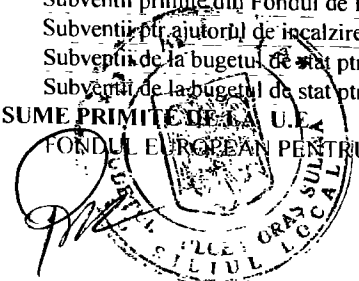 Subventii primite din Fondul de
Subventii ptr ajutorul de incalzire
Subventii de la bugetul de stat ptr
Subventii de la bugetul de stat ptr
SUME PRIMITE DE LA U.E.
FONDUL EUROPEAN PENTRU
ORAS SULINA
LOCAL